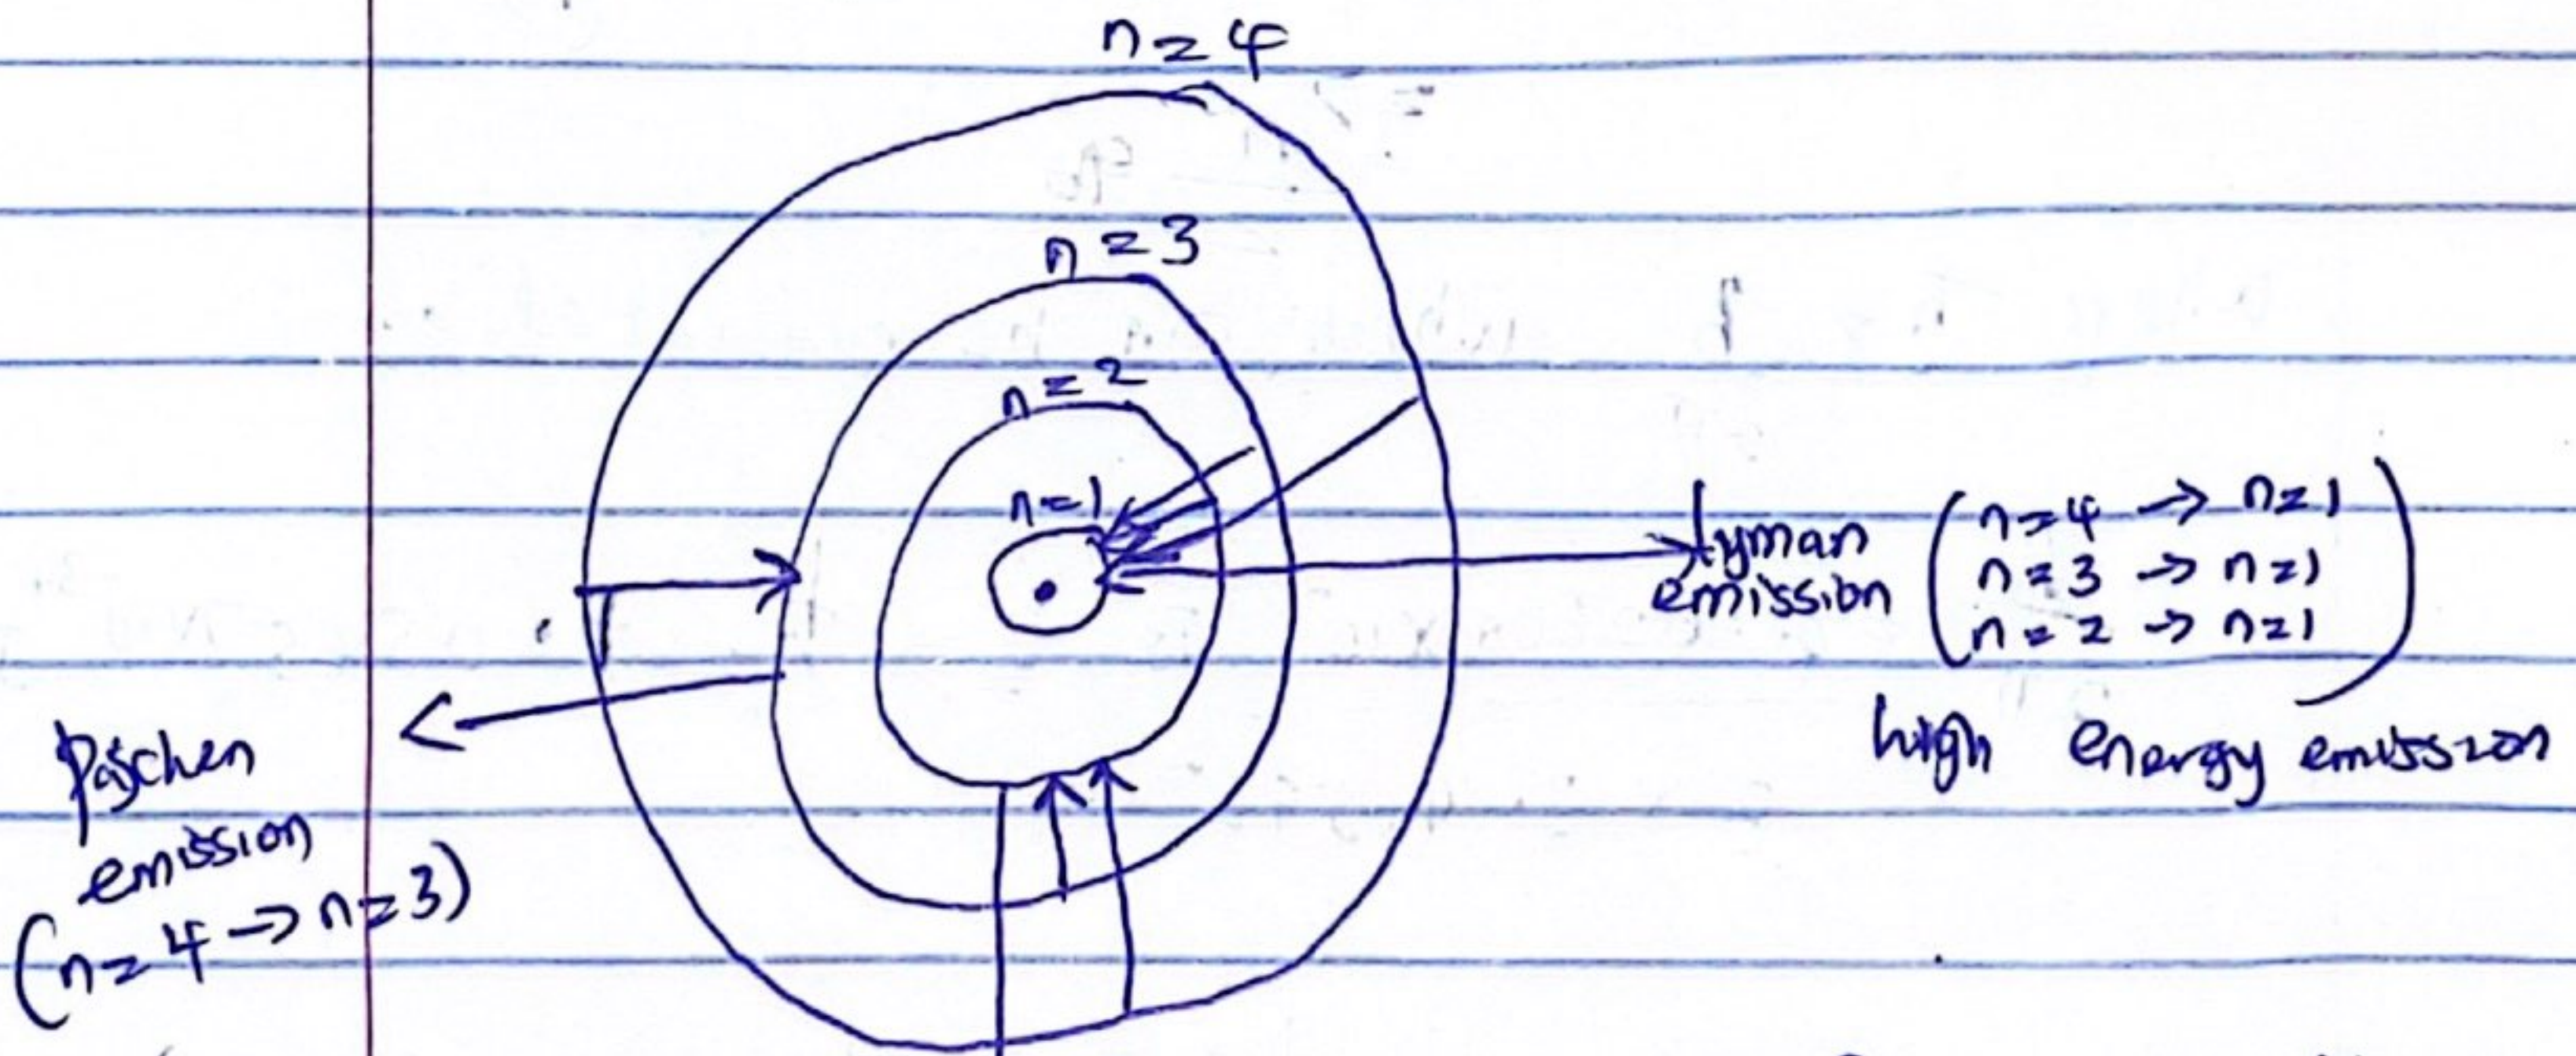 n=4
n=3
n=2
n=1
Lyman
emission
n=4 → n=1
n=3 → n=1
n=2 → n=1
high energy emission
Paschen
emission
(n=4 → n=3)